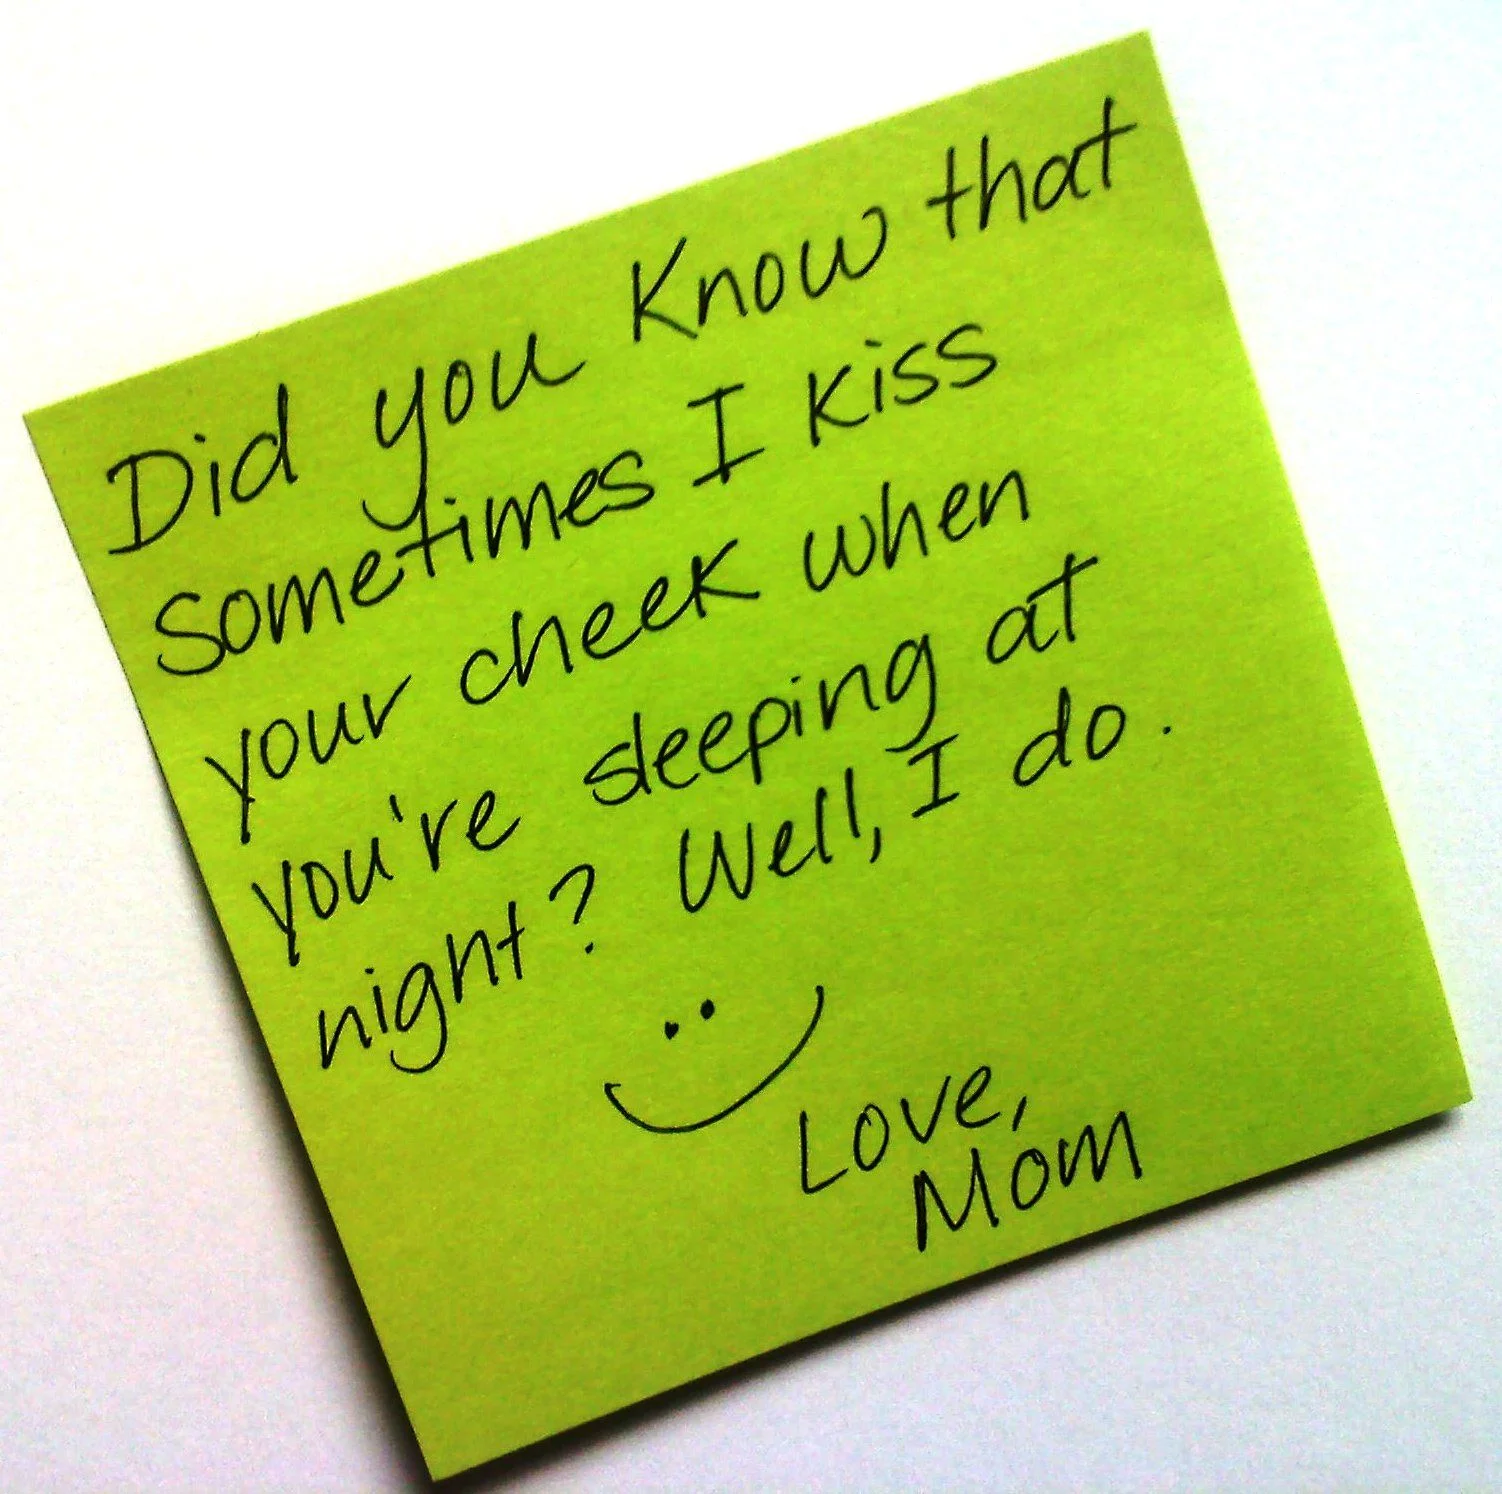 Did you know that
sometimes I kiss
your cheek when
you're sleeping at
night? Well, I do.
Love,
Mom